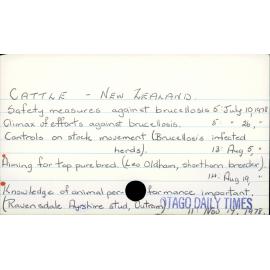 CATTLE - NEW ZEALAND.
Safety measures against brucellosis 5 July 10, 1978
Climax of efforts against brucellosis. 5 " 26, "
Controls on stock movement (Brucellosis infected
herds). 13 Aug. 5, "
Aiming for top purebred. (Leo Oldham, shorthorn breeder).
14 Aug 19, "
Knowledge of animal performance important.
(Ravensdale Ayrshire stud, Outram) OTAGO DAILY TIMES
11 Nov 17, 1978.